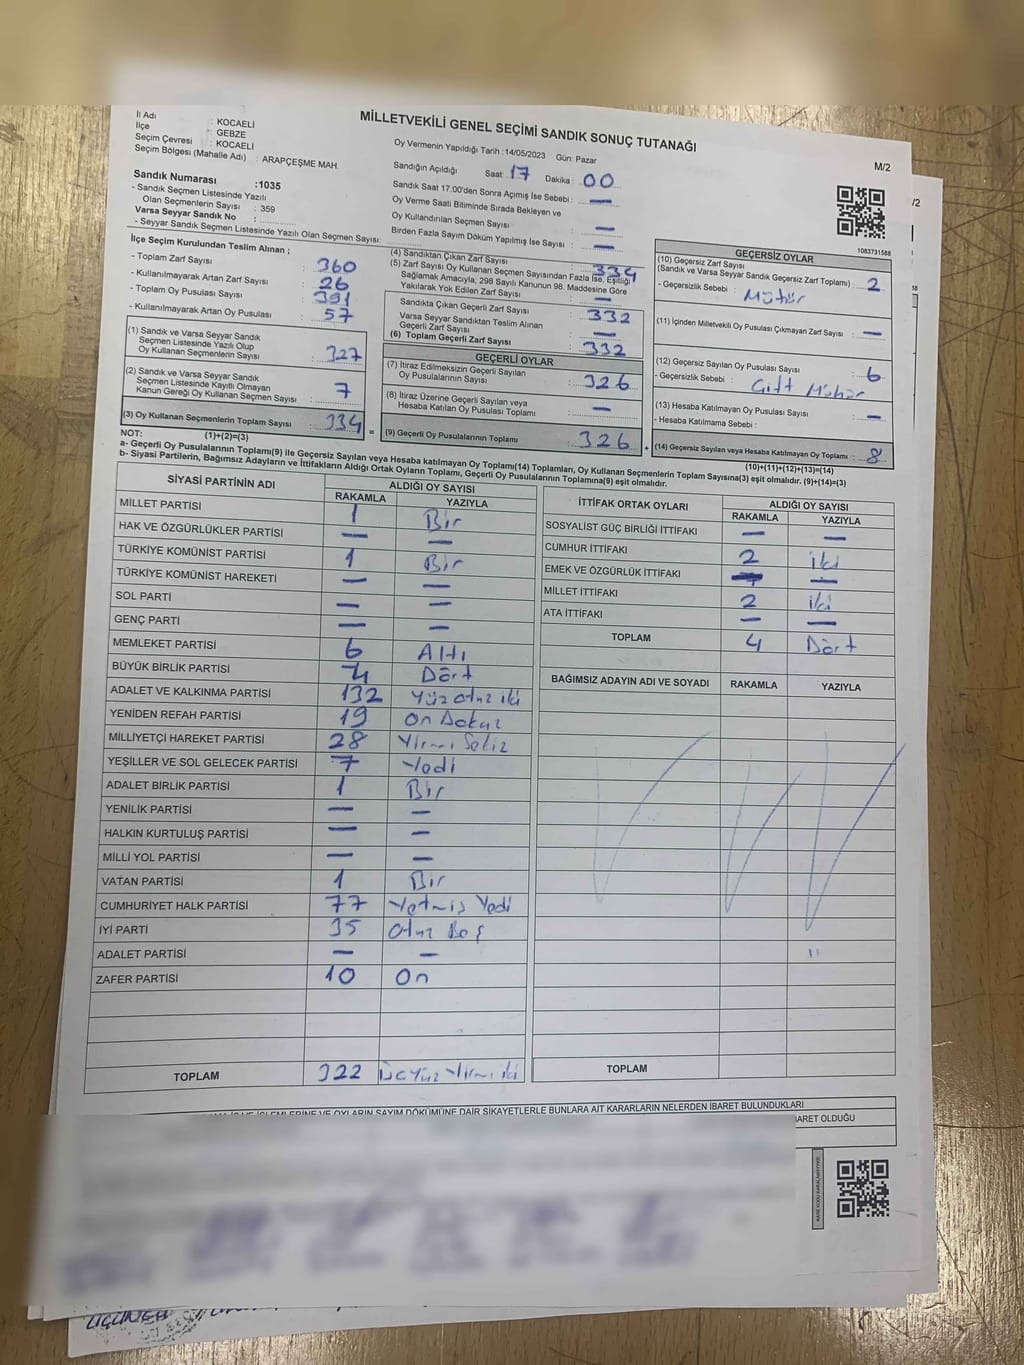 MİLLETVEKİLİ GENEL SEÇİMİ SANDIK SONUÇ TUTANAĞI
M/2
/2
İl Adı : KOCAELİ
İlçe : GEBZE
Seçim Çevresi : KOCAELİ
Seçim Bölgesi (Mahalle Adı) : ARAPÇEŞME MAH.
Sandık Numarası :1035
- Sandık Seçmen Listesinde Yazılı
Olan Seçmenlerin Sayısı : 359
Varsa Seyyar Sandık No :
- Seyyar Sandık Seçmen Listesinde Yazılı Olan Seçmen Sayısı:
Oy Vermenin Yapıldığı Tarih :14/05/2023 Gün: Pazar
Sandığın Açıldığı Saat: 17 Dakika: 00
Sandık Saat 17.00'den Sonra Açımış İse Sebebi : —
Oy Verme Saati Bitiminde Sırada Bekleyen ve
Oy Kullandırılan Seçmen Sayısı : —
Birden Fazla Sayım Döküm Yapılmış İse Sayısı : —
1083731588
İlçe Seçim Kurulundan Teslim Alınan ;
- Toplam Zarf Sayısı : 360
- Kullanılmayarak Artan Zarf Sayısı : 26
- Toplam Oy Pusulası Sayısı : 391
- Kullanılmayarak Artan Oy Pusulası : 57
(1) Sandık ve Varsa Seyyar Sandık
Seçmen Listesinde Yazılı Olup
Oy Kullanan Seçmenlerin Sayısı : 327
(2) Sandık ve Varsa Seyyar Sandık
Seçmen Listesinde Kayıtlı Olmayan
Kanun Gereği Oy Kullanan Seçmen Sayısı : 7
(3) Oy Kullanan Seçmenlerin Toplam Sayısı : 334
(4) Sandıktan Çıkan Zarf Sayısı : 334
(5) Zarf Sayısı Oy Kullanan Seçmen Sayısından Fazla İse, Eşitliği
Sağlamak Amacıyla; 298 Sayılı Kanunun 98. Maddesine Göre
Yakılarak Yok Edilen Zarf Sayısı : —
Sandıkta Çıkan Geçerli Zarf Sayısı : 332
Varsa Seyyar Sandıktan Teslim Alınan
Geçerli Zarf Sayısı : —
(6) Toplam Geçerli Zarf Sayısı : 332
GEÇERLİ OYLAR
(7) İtiraz Edilmeksizin Geçerli Sayılan
Oy Pusulalarının Sayısı : 326
(8) İtiraz Üzerine Geçerli Sayılan veya
Hesaba Katılan Oy Pusulası Toplamı : —
= (9) Geçerli Oy Pusulalarının Toplamı : 326
GEÇERSİZ OYLAR
(10) Geçersiz Zarf Sayısı
(Sandık ve Varsa Seyyar Sandık Geçersiz Zarf Toplamı) : 2
- Geçersizlik Sebebi : Mühür
(11) İçinden Milletvekili Oy Pusulası Çıkmayan Zarf Sayısı : —
(12) Geçersiz Sayılan Oy Pusulası Sayısı : 6
- Geçersizlik Sebebi : Çift Mühür
(13) Hesaba Katılmayan Oy Pusulası Sayısı : —
- Hesaba Katılmama Sebebi :
+ (14) Geçersiz Sayılan veya Hesaba Katılmayan Oy Toplamı : 8
NOT: (1)+(2)=(3) (10)+(11)+(12)+(13)=(14)
a- Geçerli Oy Pusulalarının Toplamı(9) ile Geçersiz Sayılan veya Hesaba katılmayan Oy Toplamı(14) Toplamları, Oy Kullanan Seçmenlerin Toplam Sayısına(3) eşit olmalıdır. (9)+(14)=(3)
b- Siyasi Partilerin, Bağımsız Adayların ve İttifakların Aldığı Ortak Oyların Toplamı, Geçerli Oy Pusulalarının Toplamına(9) eşit olmalıdır.
SİYASİ PARTİNİN ADI ALDIĞI OY SAYISI
RAKAMLA YAZIYLA
MİLLET PARTİSİ 1 Bir
HAK VE ÖZGÜRLÜKLER PARTİSİ — —
TÜRKİYE KOMÜNİST PARTİSİ 1 Bir
TÜRKİYE KOMÜNİST HAREKETİ — —
SOL PARTİ — —
GENÇ PARTİ — —
MEMLEKET PARTİSİ 6 Altı
BÜYÜK BİRLİK PARTİSİ 4 Dört
ADALET VE KALKINMA PARTİSİ 132 Yüz otuz iki
YENİDEN REFAH PARTİSİ 19 On Dokuz
MİLLİYETÇİ HAREKET PARTİSİ 28 Yirmi Sekiz
YEŞİLLER VE SOL GELECEK PARTİSİ 7 Yedi
ADALET BİRLİK PARTİSİ 1 Bir
YENİLİK PARTİSİ — —
HALKIN KURTULUŞ PARTİSİ — —
MİLLİ YOL PARTİSİ — —
VATAN PARTİSİ 1 Bir
CUMHURİYET HALK PARTİSİ 77 Yetmiş Yedi
İYİ PARTİ 35 Otuz Beş
ADALET PARTİSİ — —
ZAFER PARTİSİ 10 On
TOPLAM 322 Üçyüz Yirmi iki
İTTİFAK ORTAK OYLARI ALDIĞI OY SAYISI
RAKAMLA YAZIYLA
SOSYALİST GÜÇ BİRLİĞİ İTTİFAKI — —
CUMHUR İTTİFAKI 2 iki
EMEK VE ÖZGÜRLÜK İTTİFAKI — —
MİLLET İTTİFAKI 2 iki
ATA İTTİFAKI — —
TOPLAM 4 Dört
BAĞIMSIZ ADAYIN ADI VE SOYADI RAKAMLA YAZIYLA
TOPLAM
İŞLEMLERİNE VE OYLARIN SAYIM DÖKÜMÜNE DAİR ŞİKAYETLERLE BUNLARA AİT KARARLARIN NELERDEN İBARET BULUNDUKLARI
BARET OLDUĞU